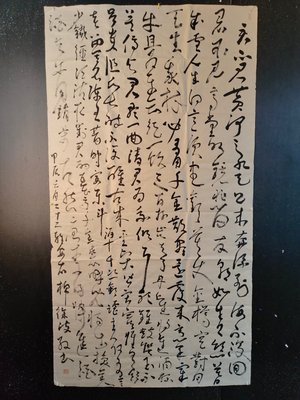 君不见黄河之水天上来奔流到海不復回
君不见高堂明镜悲白发朝如青丝暮
成雪人生得意须尽欢莫使金樽空对月
天生我材必有用千金散尽还復来烹羊宰
牛且为乐会须一饮三百杯岑夫子丹丘生将进酒
君莫停与君歌一曲请君为我倾耳听钟鼓馔玉不
足贵但愿长醉不復醒古来圣贤皆寂寞惟有饮
者留其名陈王昔时宴平乐斗酒十千恣欢谑主人何为言
少钱径须沽取对君酌五花马千金裘呼儿将出换美
酒与尔同销万古愁
甲辰